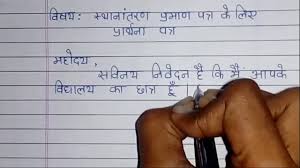 विषय: स्थानांतरण प्रमाण पत्र के लिए
प्रार्थना पत्र
महोदय,
सविनय निवेदन है कि मैं आपके
विद्यालय का छात्र हूँ ।